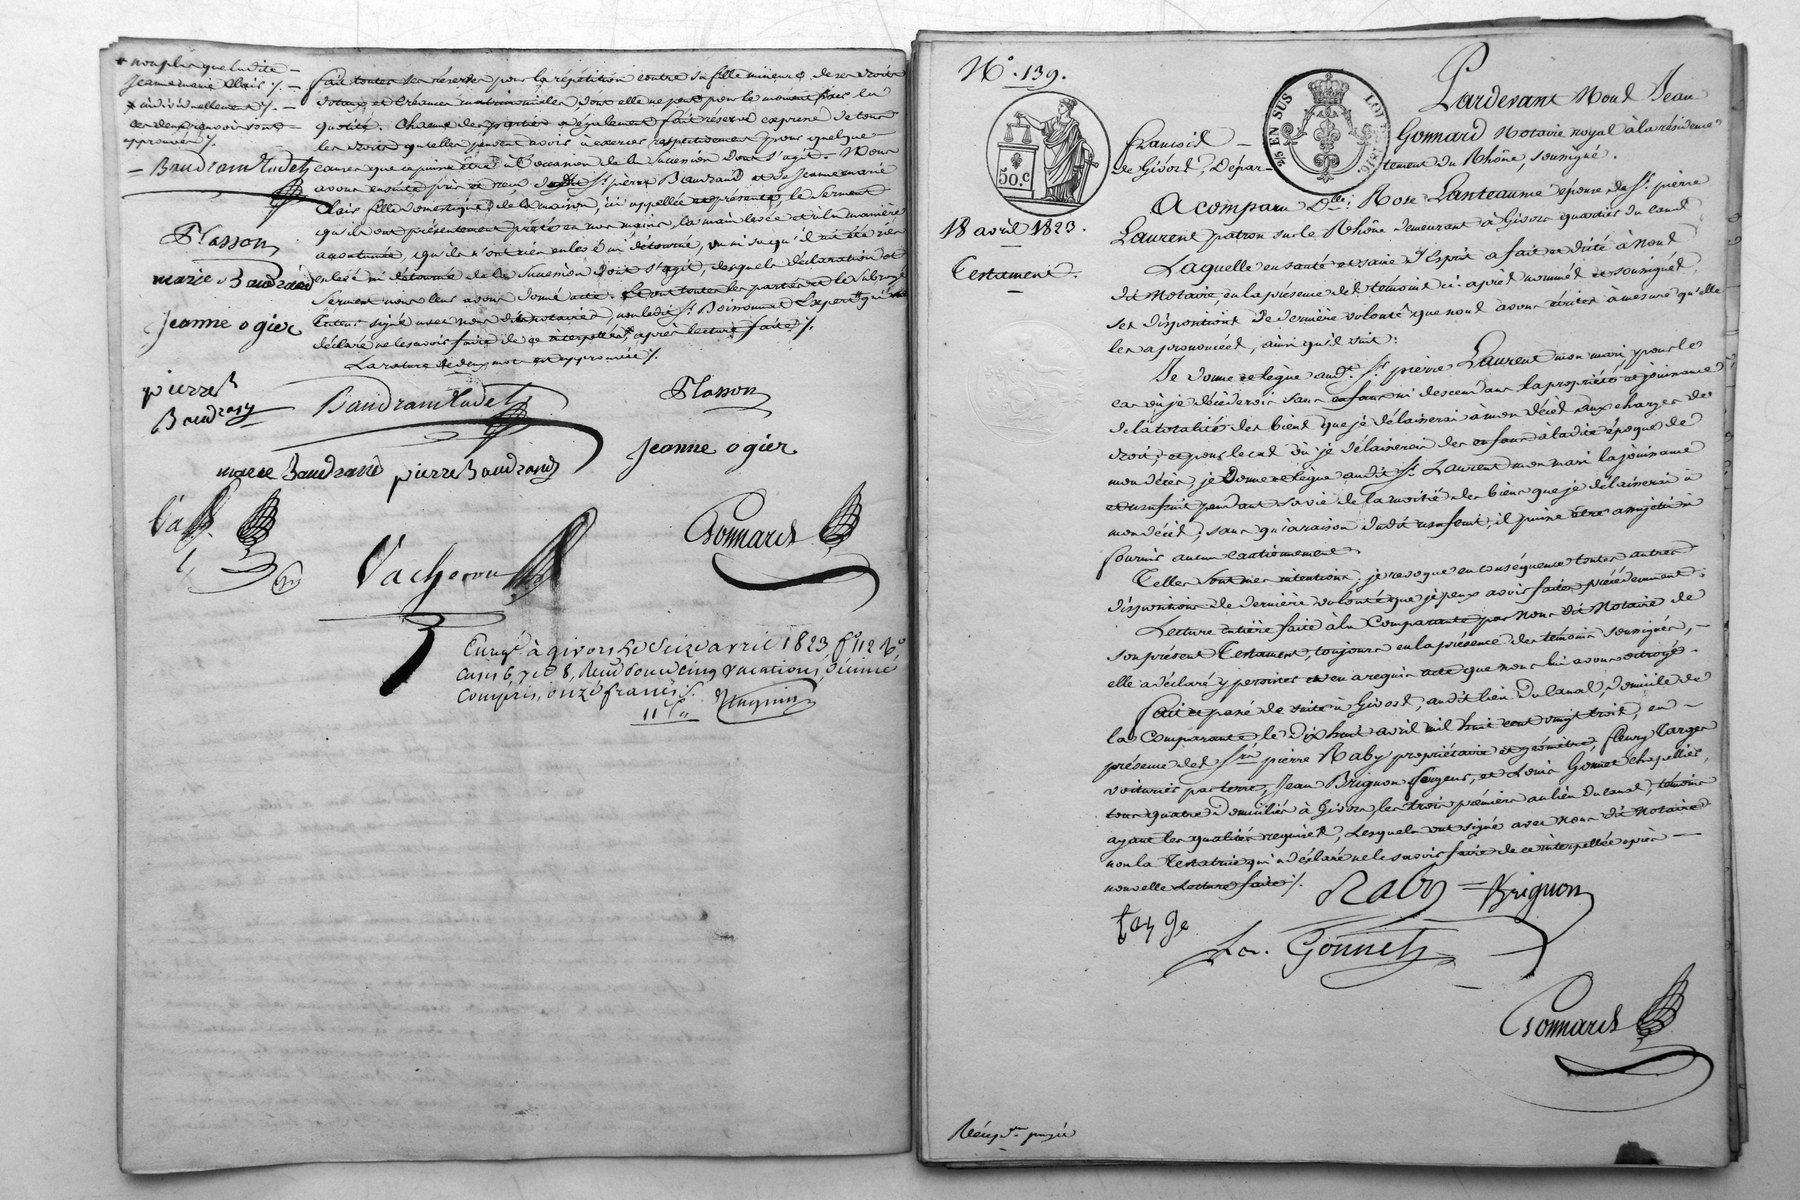 * non plus que ladite —
Jeanne marie Clair /. —
* individuellement /. —
ces deux renvois sont
approuvés /.
— Baudran Mudet
Masson
marie Baudrand
Jeanne ogier
pierre
Baudrand
fait toutes ses réserves pour la répétition contre sa fille mineure, de ses droits
dotaux et Créances matrimoniales, dont elle ne peut pour le moment fixer la
quotité. Chacune des parties a également fait réserve expresse de tous
les droits qu'elles peuvent avoir à exercer respectivement pour quelque —
cause que ce puisse être à l'occasion de la succession dont s'agit. Nous
avons ensuite pris et reçu dudit Sr. pierre Baudrand et de Jeanne marie
Clair fille domestique de la maison, ici appellée et présente, le serment
qu'ils ont présentement prêté en nos mains, la main levée et à la manière
accoutumée, qu'ils n'ont rien enlevé ni détourné, vu ni su qu'il ait été rien
enlevé ni détourné de la succession dont s'agit, desquels déclaration et
serment nous leur avons donné acte. Et ont toutes les parties et le subrogé
tuteur signé avec nous dit notaire, non ledit Sr. Boissonnat Expert qui a
déclaré ne le savoir faire de ce interpellé, après lecture faite /.
La rature de deux mots est approuvée /.
Baudran Mudet
Masson
marie Baudrand pierre Baudrand
Jeanne ogier
Vacheron
Gonnard
Enregé à givors le Seize avril 1823, fo. 112 Ro.
cases 6, 7 et 8, Reçu pour cinq vacations, décime
compris, onze francs /.
11 f.
Nº. 139.
50.C
25 EN SUS
18 avril 1823.
Testament.
Pardevant Nous Jean
François — Gonnard Notaire royal à la résidence
de Givors, Dépar- tement du Rhône, soussigné.
A comparu Delle. Rose Lanteaume épouse de Sr. pierre
Laurent patron sur le Rhône demeurant à Givors quartier du canal
Laquelle en santé et saine d'Esprit a fait et dicté à nous
dit Notaire en la présence des témoins ci-après nommés et soussignés,
ses dispositions de dernière volonté que nous avons écrites à mesure qu'elle
les a prononcées, ainsi qu'il suit:
Je donne et lègue audt. Sr. pierre Laurent mon mari, pour le
cas où je décéderois sans enfans ni descendans la propriété et jouissance
de la totalité des biens que je délaisserai à mon décès aux charges de
droit; et pour le cas où je délaisserois des enfans à ladite époque de
mon décès, je Donne et lègue audit Sr. Laurent mon mari la jouissance
et usufruit pendant sa vie de la moitié des biens que je délaisserai à
mon décès, sans qu'à raison dudit usufruit, il puisse être assujéti à
fournir aucun cautionnement.
Telles sont mes intentions, je revoque en conséquence toutes autres
dispositions de dernière volonté que je peux avoir faites précédemment.
Lecture entière faite à la Comparante par nous dit Notaire de
son présent Testament, toujours en la présence des témoins soussignés, —
elle a déclaré y persister et en a requis acte que nous lui avons octroyé —
fait et passé de suite à Givors, audit lieu du canal, domicile de
la Comparante le Dix huit avril mil huit cent vingt trois, en —
présence des Srs. pierre Raby propriétaire et géomètre, fleury Targe
voiturier par terre, Jean Brignon forgeur, et Louis Gonnet chapellier,
tous quatre domiciliés à Givors, les trois premiers au lieu du canal, témoins
ayant les qualités requises, Lesquels ont signé avec nous dit Notaire
non la Testatrice qui a déclaré ne le savoir faire de ce interpellée après —
nouvelle Lecture faite /.
Raby = Brignon
targe
Ls. Gonnet
Gonnard